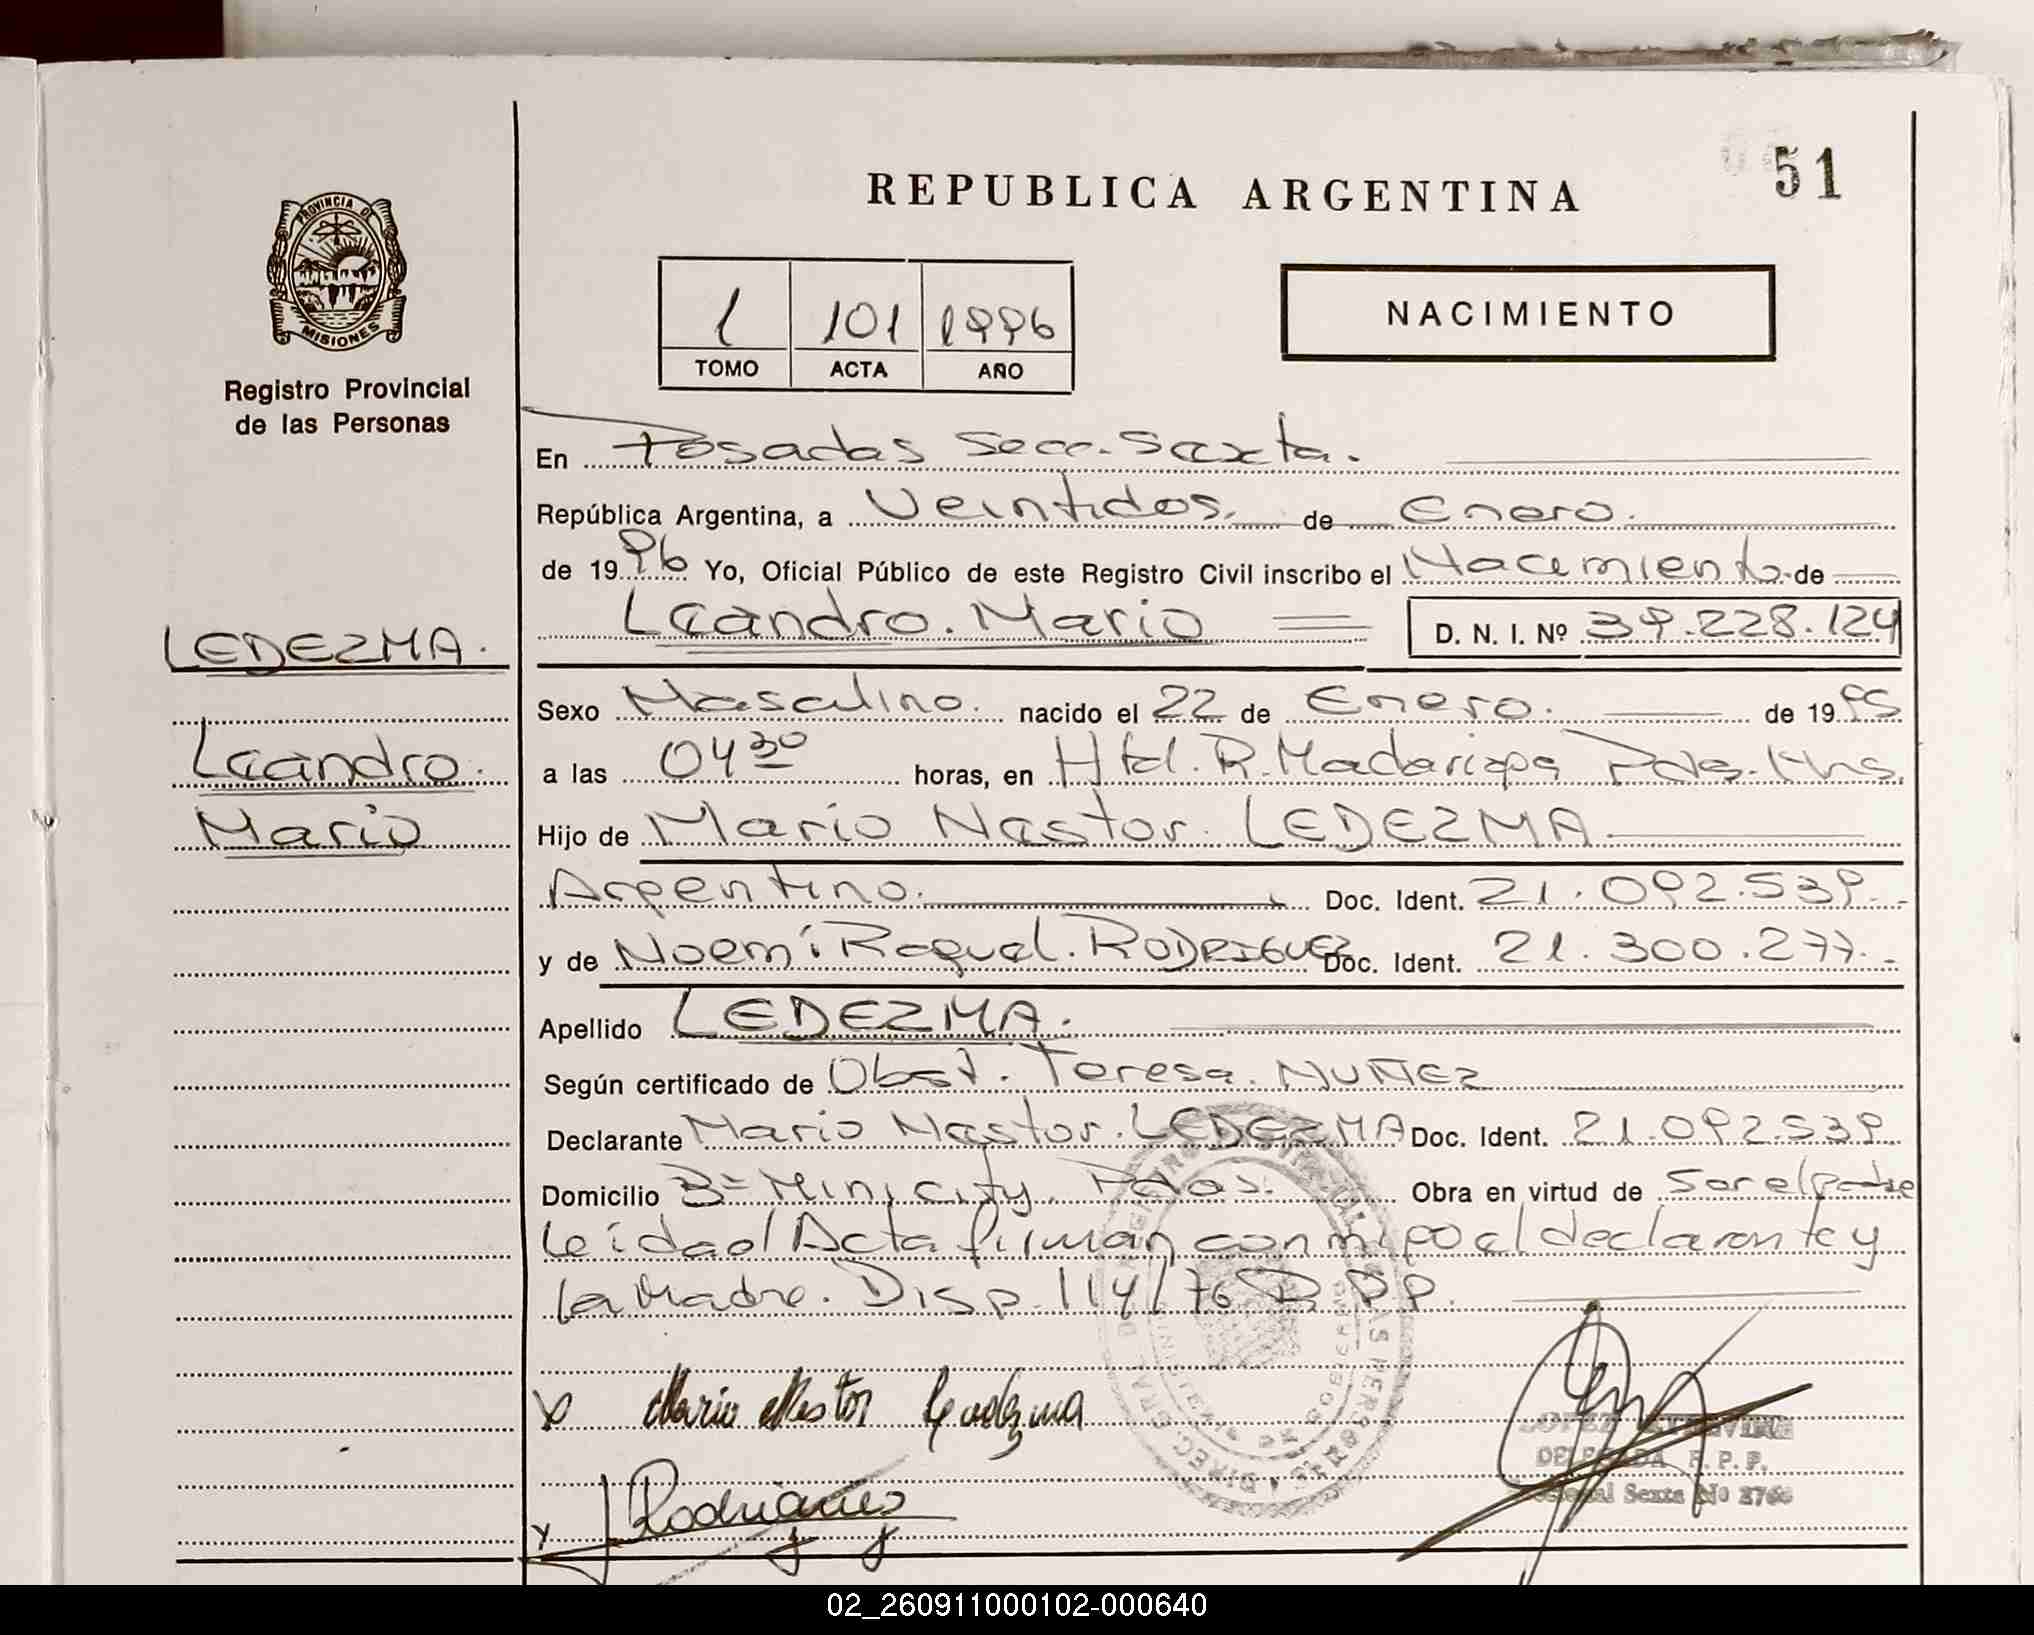 51
REPUBLICA ARGENTINA
PROVINCIA DE
MISIONES
Registro Provincial
de las Personas
NACIMIENTO
1 101 1996
TOMO ACTA AÑO
En Posadas Secc. Sexta.
República Argentina, a Veintidos. de Enero.
de 1996 Yo, Oficial Público de este Registro Civil inscribo el Nacimiento de
Leandro. Mario D. N. I. Nº 39.228.124
LEDEZMA.
Leandro.
Mario
Sexo Masculino. nacido el 22 de Enero. de 1995
a las 04 30 horas, en Htal. R. Madariaga Pdas. Mns.
Hijo de Mario Nestor. LEDEZMA
Argentino. Doc. Ident. 21.092.539.-
y de Noemí Raquel. RODRIGUEZ Doc. Ident. 21.300.277.-
Apellido LEDEZMA.
Según certificado de Obst. Teresa. NUÑEZ
Declarante Mario Nestor. LEDEZMA Doc. Ident. 21.092.539
Domicilio Bº Mini City, Pdas. Obra en virtud de Ser el padre
Leida el Acta firman conmigo el declarante y
la Madre. Disp. 114/76 D.P.P.
Mario Nestor Ledezma
Rodriguez
DELEGADA R. P. P.
Sexta Nº 2760
02_260911000102-000640